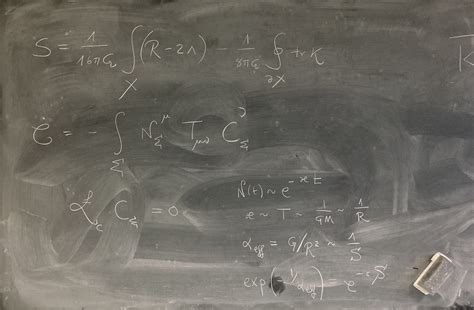 S = 1/16πG ∫_X (R - 2Λ) - 1/8πG ∮_∂X tr K
R
Ċ = - ∫_Σ N_ξ^μ T_μν C_ξ^ν
ℒ_c C_ξ = 0
N(t) ~ e^{-æt}
æ ~ T ~ 1/GM ~ 1/R
α_eff = G/R² ~ 1/S
exp(1/α_eff) ~ e^{-S}